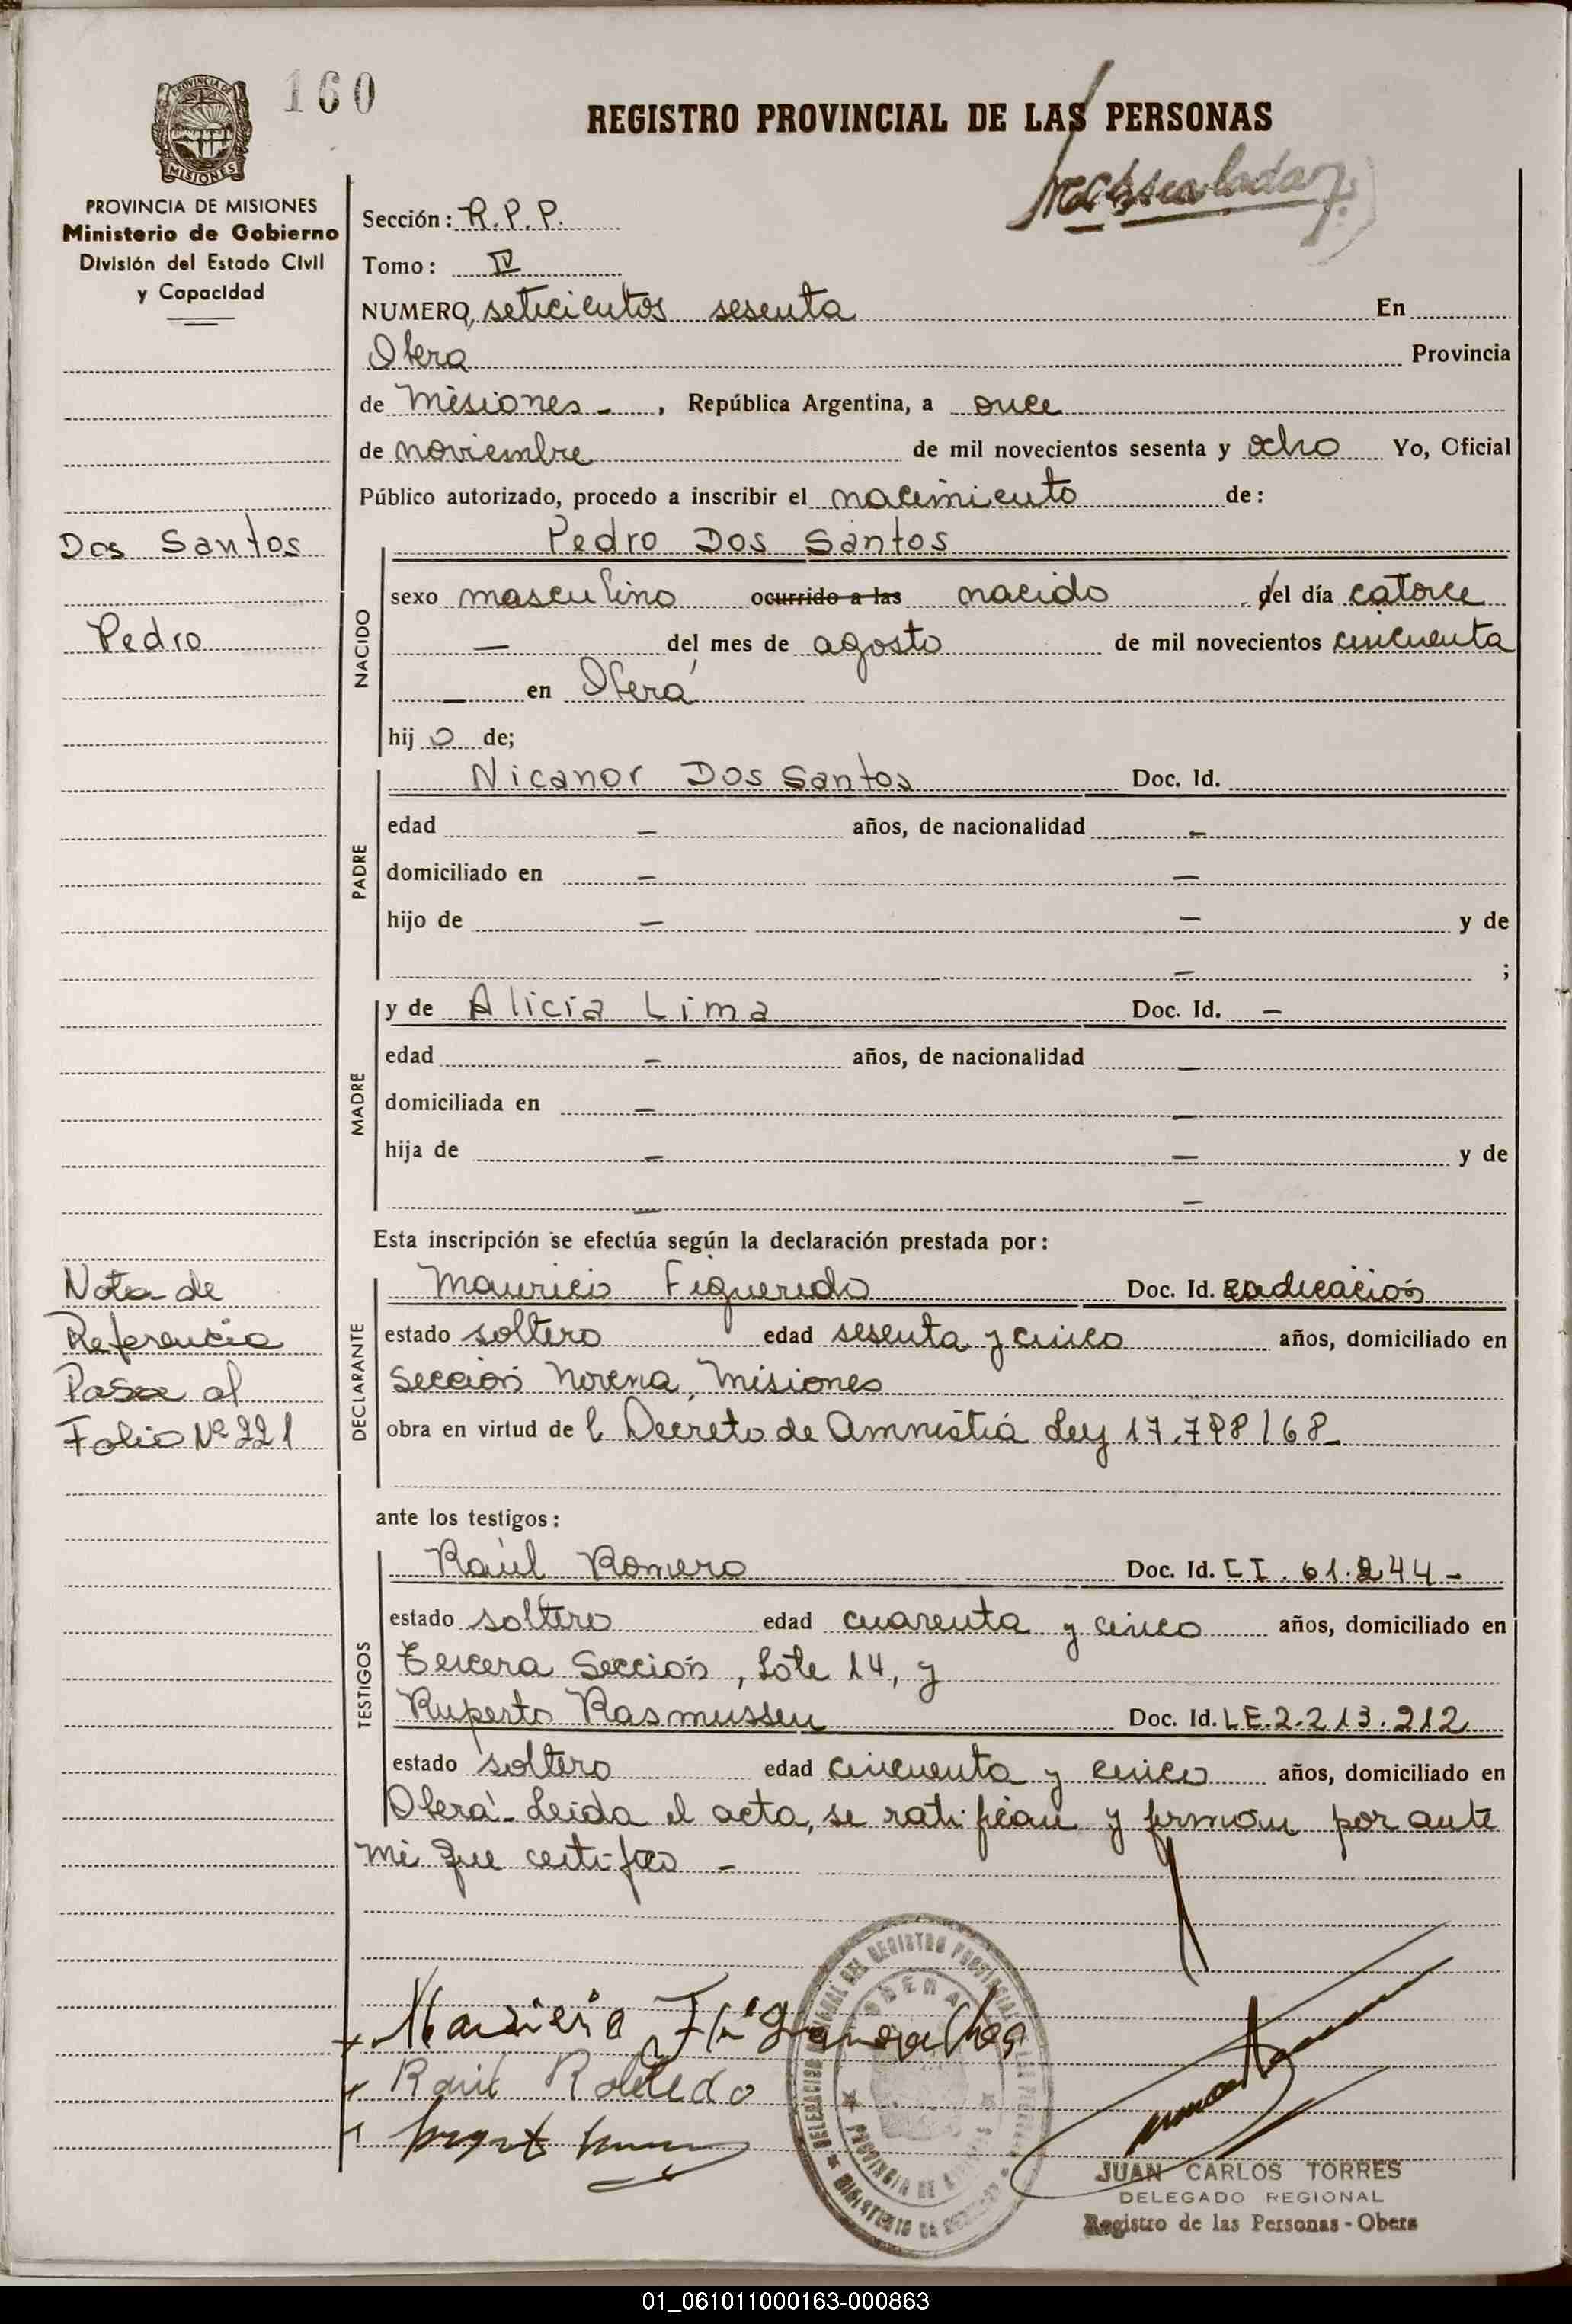 160
REGISTRO PROVINCIAL DE LAS PERSONAS
MISIONES
PROVINCIA DE MISIONES
Ministerio de Gobierno
División del Estado Civil
y Capacidad
Sección: R.P.P.
Tomo: IV
NUMERO, seticientos sesenta En
Oberá Provincia
de Misiones - , República Argentina, a once
de noviembre de mil novecientos sesenta y ocho Yo, Oficial
Público autorizado, procedo a inscribir el nacimiento de:
Dos Santos
Pedro
NACIDO
Pedro Dos Santos
sexo masculino ocurrido a las nacido del día catorce
— del mes de agosto de mil novecientos cincuenta
— en Oberá
hij o de;
PADRE
Nicanor Dos Santos Doc. Id.
edad — años, de nacionalidad —
domiciliado en — —
hijo de — — y de
— ;
MADRE
y de Alicia Lima Doc. Id. —
edad — años, de nacionalidad —
domiciliada en — —
hija de — — y de
— —
Esta inscripción se efectúa según la declaración prestada por:
Nota de
Referencia
Pasa al
Folio Nº 221
DECLARANTE
Mauricio Figueredo Doc. Id.
estado soltero edad sesenta y cinco años, domiciliado en
Sección Novena, Misiones
obra en virtud de l Decreto de Amnistiá Ley 17.798/68-
ante los testigos:
TESTIGOS
Raúl Romero Doc. Id. C I. 61.244-
estado soltero edad cuarenta y cinco años, domiciliado en
Tercera Sección, Lote 14, y
Ruperto Rasmussen Doc. Id. L E. 2.213.212
estado soltero edad cincuenta y cinco años, domiciliado en
Oberá- Leida el acta, se ratifican y firman por ante
mi que certifico -
Raúl Robledo
JUAN CARLOS TORRES
DELEGADO REGIONAL
Registro de las Personas - Obera
01_061011000163-000863